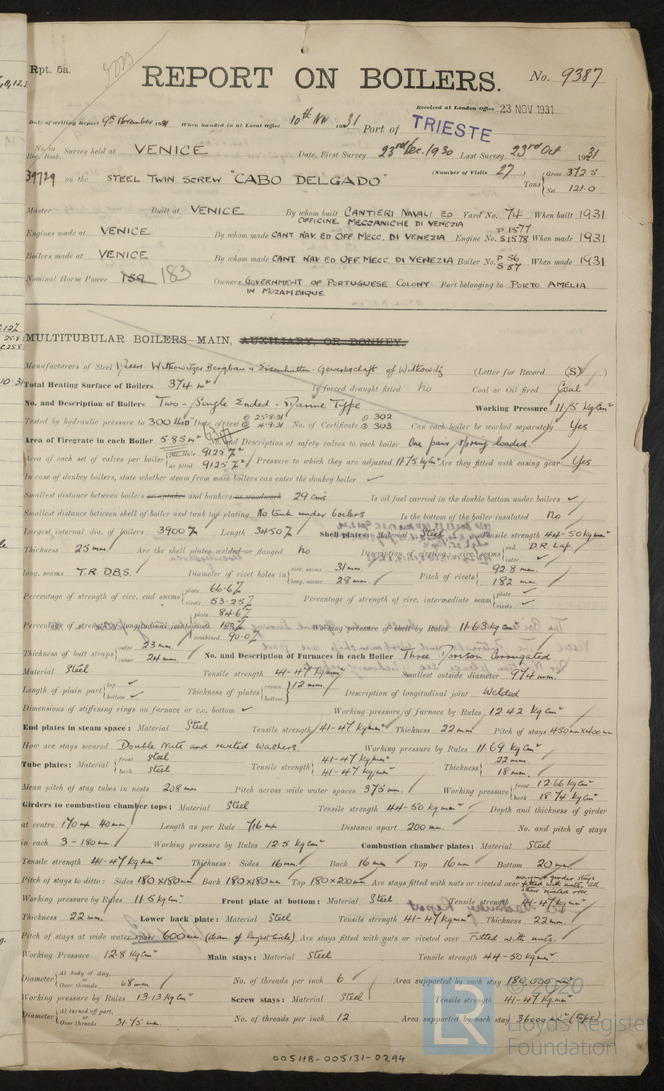 Rpt. 5a.
REPORT ON BOILERS.
No. 9387
Received at London Office 23 NOV 1931
Date of writing Report 9th November 1931 When handed in at Local Office 10th Nov 1931 Port of TRIESTE
No. in Reg. Book. Survey held at VENICE Date, First Survey 23rd Dec. 1930 Last Survey 23rd Oct 1931
39729 on the STEEL TWIN SCREW "CABO DELGADO" (Number of Visits 27) Tons Gross 372.5 Net 121.0
Master Built at VENICE By whom built CANTIERI NAVALI ED OFFICINE MECCANICHE DI VENEZIA Yard No. 74 When built 1931
Engines made at VENICE By whom made CANT NAV. ED OFF MECC. DI VENEZIA Engine No. P 1577 S 1578 When made 1931
Boilers made at VENICE By whom made CANT NAV. ED OFF MECC DI VENEZIA Boiler No. P 56 S 57 When made 1931
Nominal Horse Power 183 Owners GOVERNMENT OF PORTUGUESE COLONY IN MOZAMBIQUE Port belonging to PORTO AMELIA
MULTITUBULAR BOILERS MAIN, AUXILIARY, OR DONKEY.
Manufacturers of Steel Witkowitzer Bergbau & Eisenhütten-Gewerkschaft of Witkowitz (Letter for Record (S))
Total Heating Surface of Boilers 374 m² Is forced draught fitted no Coal or Oil fired Coal
No. and Description of Boilers Two - Single Ended - Marine Type Working Pressure 11.5 Kg/cm²
Tested by hydraulic pressure to 300 Date of test 25.8.31 4.9.31 No. of Certificate 302 303 Can each boiler be worked separately Yes
Area of Firegrate in each Boiler 5.85 m² No. and Description of safety valves to each boiler One pair, spring loaded
Area of each set of valves per boiler 9125 as fitted 9125 Pressure to which they are adjusted 11.75 Kg/cm² Are they fitted with easing gear Yes
In case of donkey boilers, state whether steam from main boilers can enter the donkey boiler ✓
Smallest distance between boilers or uptakes and bunkers or woodwork 29 cms Is oil fuel carried in the double bottom under boilers ✓
Smallest distance between shell of boiler and tank top plating No tank under boilers Is the bottom of the boiler insulated no
Largest internal dia. of boilers 3900 Length 3450 Shell plates: Material Steel Tensile strength 44-50 kg/mm²
Thickness 25 mm Are the shell plates welded or flanged no Description of riveting: circ. seams end D.R. Lap. inter. ✓
long. seams T.R.D.B.S. Diameter of rivet holes in circ. seams 31 mm long. seams 28 mm Pitch of rivets 92.8 mm 182 mm
Percentage of strength of circ. end seams plate 66.6% rivets 53.25% Percentage of strength of circ. intermediate seam plate ✓ rivets ✓
Percentage of strength of longitudinal joint plate 84.6% combined 90.0% Working pressure of shell by Rules 11.63 Kg/cm²
Thickness of butt straps outer 23 mm inner 24 mm No. and Description of Furnaces in each Boiler Three Morison Corrugated
Material Steel Tensile strength 41-47 Kg/mm² Smallest outside diameter 974 mm.
Length of plain part top ✓ bottom ✓ Thickness of plates crown bottom 12 mm Description of longitudinal joint Welded
Dimensions of stiffening rings on furnace or c.c. bottom ✓ Working pressure of furnace by Rules 12.42 Kg/cm²
End plates in steam space: Material Steel Tensile strength 41-47 Kg/mm² Thickness 22 mm Pitch of stays 450mm x 400mm
How are stays secured Double Nuts and riveted washers Working pressure by Rules 11.69 Kg/cm²
Tube plates: Material front Steel back Steel Tensile strength 41-47 Kg/mm² 41-47 Kg/mm² Thickness 22 mm. 18 mm.
Mean pitch of stay tubes in nests 208 mm Pitch across wide water spaces 375 mm. Working pressure front 12.66 Kg/cm² back 18.74 Kg/cm²
Girders to combustion chamber tops: Material Steel Tensile strength 44-50 Kg/mm² Depth and thickness of girder
at centre 170 x 40 mm Length as per Rule 716 mm Distance apart 200 mm. No. and pitch of stays
in each 3 - 180 mm Working pressure by Rules 12.5 Kg/cm² Combustion chamber plates: Material Steel
Tensile strength 41-47 Kg/mm² Thickness: Sides 16 mm Back 16 mm Top 16 mm Bottom 20 mm
Pitch of stays to ditto: Sides 180x180 Back 180x180 Top 180x200 Are stays fitted with nuts or riveted over
Working pressure by Rules 11.5 Kg/cm² Front plate at bottom: Material Steel Tensile strength 41-47 Kg/mm²
Thickness 22 mm. Lower back plate: Material Steel Tensile strength 41-47 Kg/mm² Thickness 22 mm.
Pitch of stays at wide water space 600 m Are stays fitted with nuts or riveted over Fitted with nuts
Working Pressure 12.8 Kg/cm² Main stays: Material Steel Tensile strength 44-50 Kg/mm²
Diameter At body of stay, or Over threads 68 mm No. of threads per inch 6 Area supported by each stay 180,000 mm²
Working pressure by Rules 13.13 Kg/cm² Screw stays: Material Steel Tensile strength 41-47 Kg/mm²
Diameter At turned off part, or Over threads 31.75 mm. No. of threads per inch 12 Area supported by each stay 36000 mm² (Tops)
© 2020
LR
Lloyd's Register
Foundation
005118-005131-0294